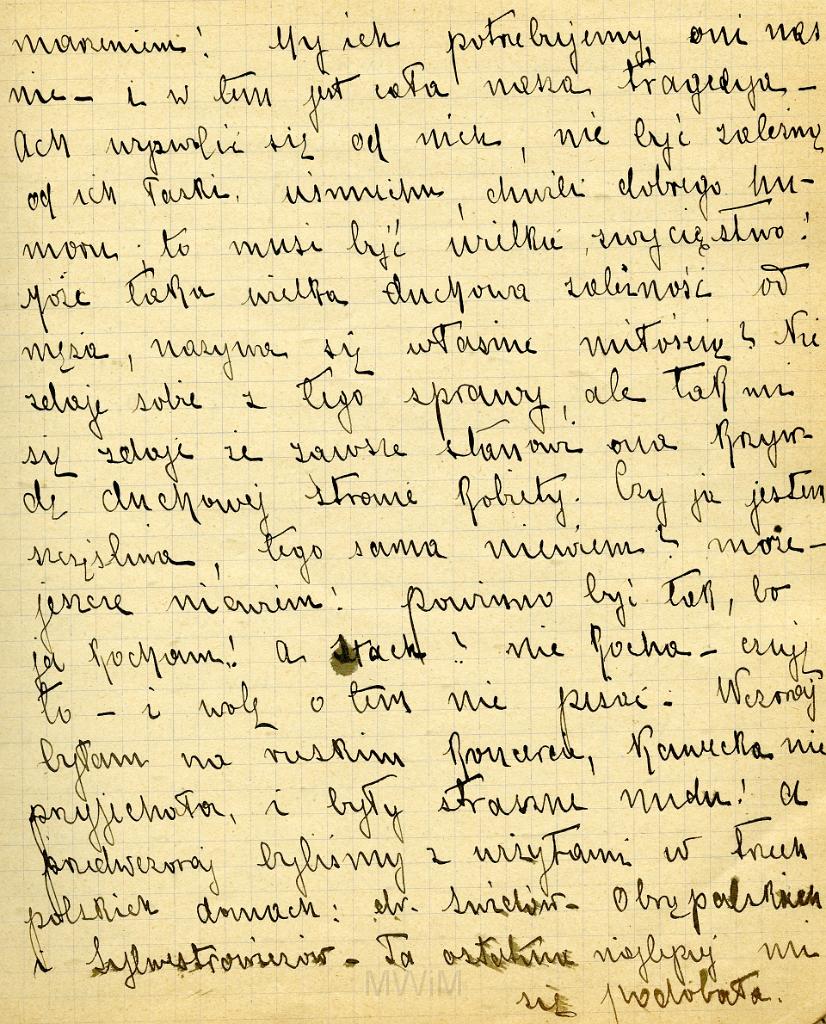 marzeniem! My ich potrzebujemy, oni nas
nie – i w tem jest cała nasza tragedya –
Ach wyzwolić się od nich, nie być zależną
od ich łaski, uśmiechu, chwili dobrego hu-
moru, to musi być wielkie zwycięstwo!
Może taka wielka duchowa zależność od
męża, nazywa się własnie miłością? Nie
zdaję sobie z tego sprawy, ale tak mi
się zdaje że zawsze stanowi ona krzyw-
dę duchowej stronie kobiety. Czy ja jestem
szczęśliwa, tego sama niewiem? może –
jeszcze niewiem! powinno być tak, bo
ja kocham! a Stach? nie kocha – czuję
to – i wolę o tem nie pisać. Wczoraj
byłam na ruskim koncercie, Kawecka nie
przyjechała, i były straszne nudy! a
przedwczoraj byliśmy z wizytami w trzech
polskich domach: dr.
i Sylwestrowiczów – Ta ostatnia najlepiej mi
się podobała.
MWiM